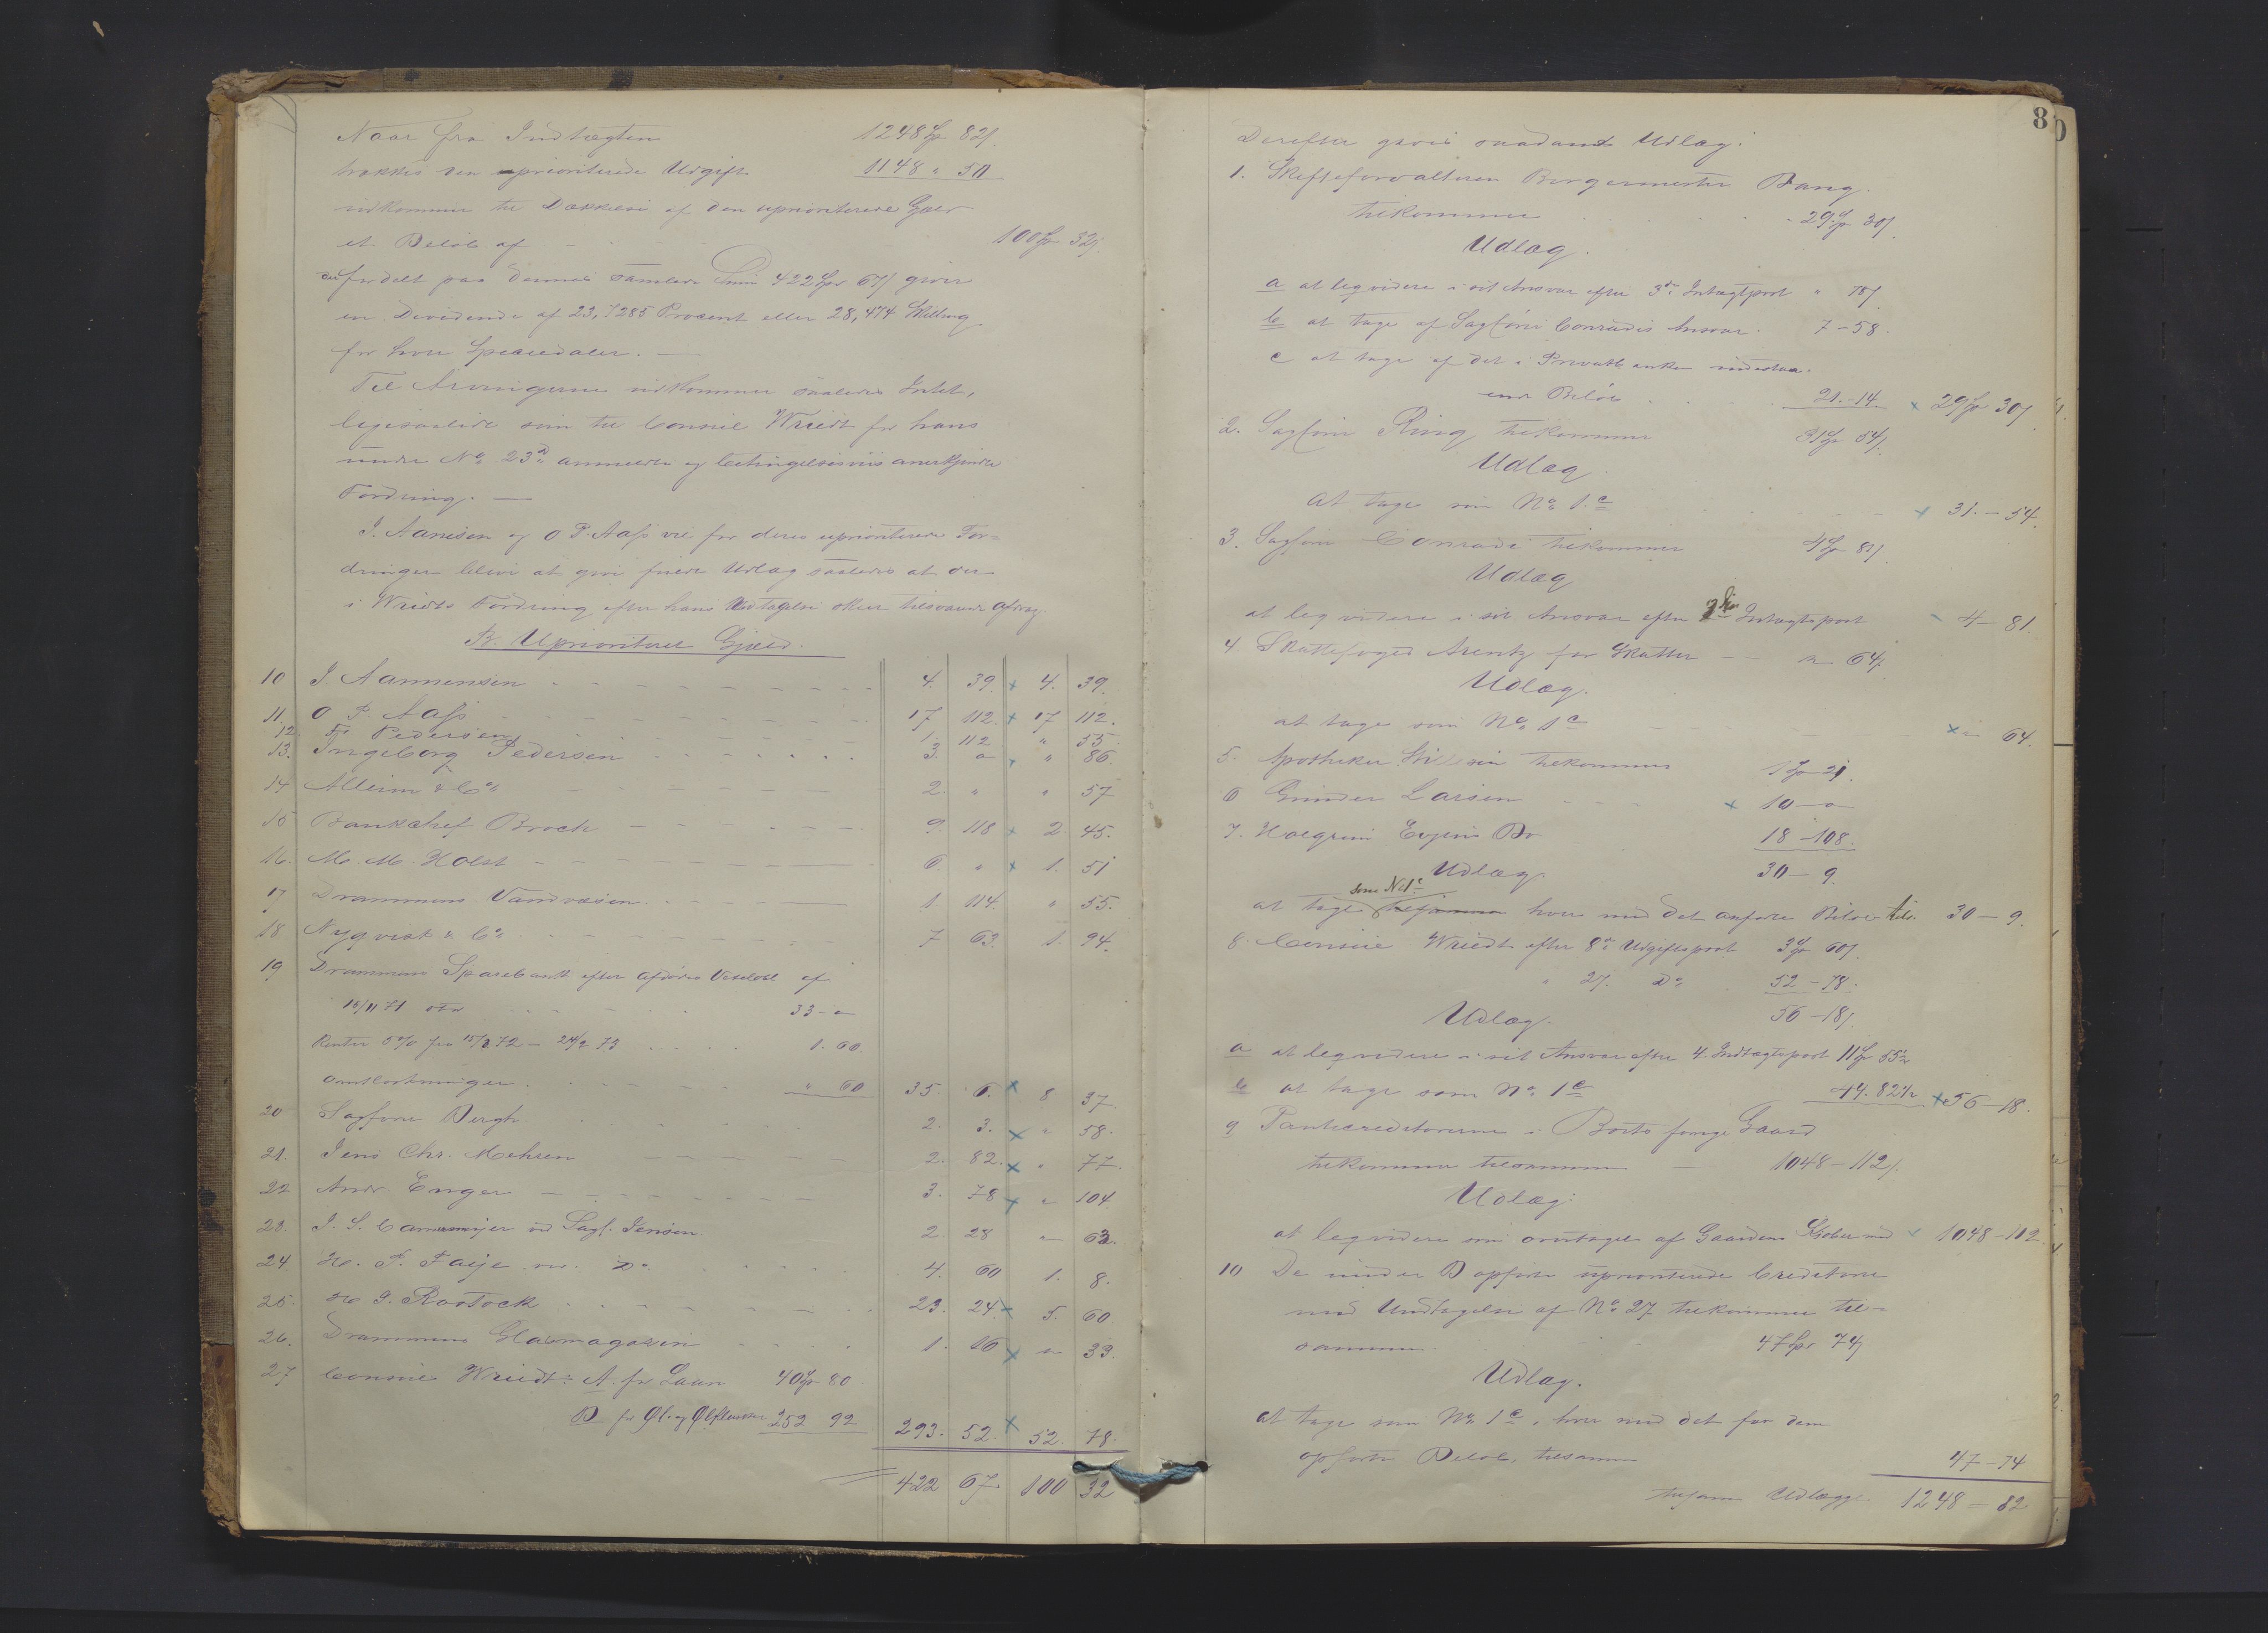 Naar fra Indtægten 1248 Spd 82 ſ
trækkes den prioriterede Udgift 1148 " 50
vedkommer til Dækkelse af den uprioriterede Gjæld
et Beløb af - 100 Spd 32 ſ
der fordelt paa dennes samlede Sum 422 Spd 67 ſ giver
en Dividende af 23,7285 Procent eller 28,474 Skilling
for hver Speciedaler. —
Til Arvingerne udkommer saaledes Intet,
ligesaalidt som til Consul Wriedt for hans
under No 23 d anmeldte og betingelsesviis anerkjendte
Fordring. —
J. Aanesen og O P. Aass vil for deres uprioriterede For-
dringer blive at give fuldt Udlæg saaledes at der
i Wriedts Fordring efter hans Vedtagelse skeer tilsvarende Afdrag.
B. Uprioriteret Gjæld.
10 J. Aannensen 4. 39. x 4. 39.
11. O P. Aass 17 112. x 17 112.
12. Fr Pedersen 1. 112 " 53.
13. Ingeborg Pedersen 3. " " 86.
14 Alleim & Co 2. " " 57
15 Bankchef Broch 9. 118 x 2 45.
16. M. M. Holst 6. " x 1. 51
17 Drammens Vandvæsen 1. 114. " 55.
18 Nyqvist & Co 7 63. 1. 94.
19 Drammens Sparebank efter Afdødes Vexelobl. af
15/11 71 33 - "
Renter 6% fra 15/8 72 - 24/2 73 1. 60.
Omkostninger " 60 35. 6. x 8 37.
20 Sagfører Bergh 2. 3. x " 58.
21. Jens Chr. Mehren 2. 82. x " 77.
22 Andr Enger 3. 78 x " 104.
23. J. S. Cammermejer ved Sagf. Jensen 2. 28 " 63.
24 H. F. Faije ved Do 4. 60 1. 8.
25. H J. Rostock 23. 24 x 5. 60
26. Drammens Glasmagasin 1. 16 x " 33.
27 Consul Wriedt: A. for Laan 40 Spd 80
B for Øl- og Ølflasker 252 92 293. 52. x 52. 78.
422 67 100 32
8
Derefter gives saadant Udlæg:
1. Skifteforvalteren Borgermester Bang.
tilkommer 29 Spd 30 ſ
Udlæg.
a at leqvidere i sit Ansvar efter 3de Indtægtspost " 78 ſ
b at tage af Sagfører Conradis Ansvar. 7 - 58.
c at tage af det i Privatbanken indestaa-
ende Beløb 21. - 14. x 29 Spd 30 ſ
2. Sagfører Ring tilkommer 31 Spd 54 ſ
Udlæg
At tage som No 1 c x 31. - 54.
3. Sagfører Conradi tilkommer 4 Spd 81 ſ
Udlæg
at leqvidere i sit Ansvar efter Indtægtspost 4 - 81.
4. Skattefoged Arentz for Skatter " 64
Udlæg.
at tage som No 1 c x " 64.
5. Apotheker tilkommer 1 Spd 21.
6 Larsen x 10 - "
7. Bo 18 - 108.
Udlæg. 30 - 9.
som No 1 c
at tage tilsammen hver med det anførte Beløb tils. 30 - 9.
8. Consul Wriedt efter 8de Udgiftspost 3 Spd 60 ſ
" 27. Do 52 - 78.
Udlæg. 56 - 18 ſ
a at leqvidere i sit Ansvar efter 4. Indtægtspost 11 Spd 55½
b at tage som No 1 c 44. 82½ x 56 - 18.
9 Pantcreditorerne i Boets forrige Gaard
tilkommer tilsammen 1048 - 112 ſ
Udlæg:
at leqvidere som overtaget af Gaardens Kjøber med 1048 - 112.
10 De under B opførte uprioriterede Creditorer
med Undtagelse af No 27 tilkommer til-
sammen 47 Spd 74 ſ
Udlæg.
at tage som No 1 c, hver med det for dem
opførte Beløb, tilsammen 47 - 74
tilsammen Udlægges 1248 - 82